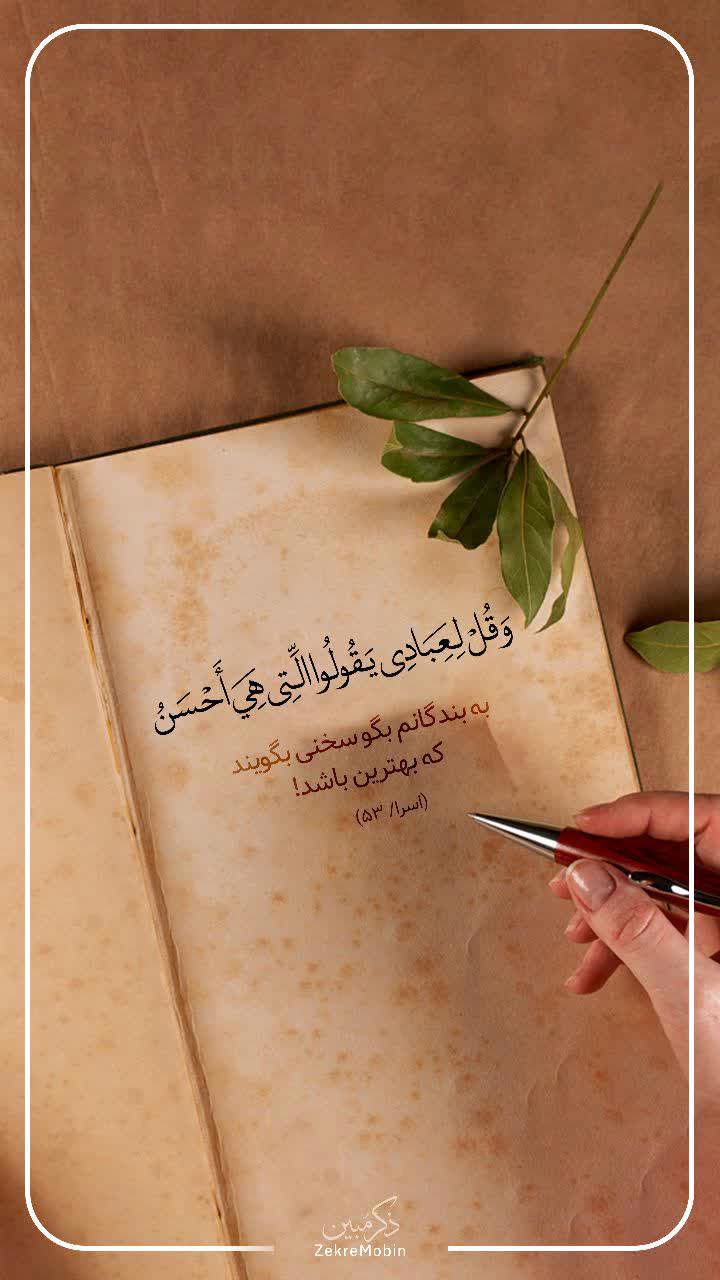 وَقُلْ لِعِبَادِی یَقُولُوا الَّتِی هِيَ أَحْسَنُ
به بندگانم بگو سخنی بگویند
که بهترین باشد!
(اسرا/ ۵۳)
ذکر مُبین
ZekreMobin